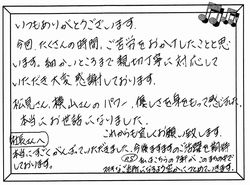 いつもありがとうございます。
今回、たくさんの時間、ご苦労をおかけしたことと思
います。細かいところまで親切丁寧に対応して
いただき大変感謝しております。
松尾さん、横山さんのパワー、優しさを身をもって感じました。
本当にお世話になりました。
これからも宜しくお願い致します。
本当にすごくがんばっていただきました。今後ますますのご活躍を期待
しております。